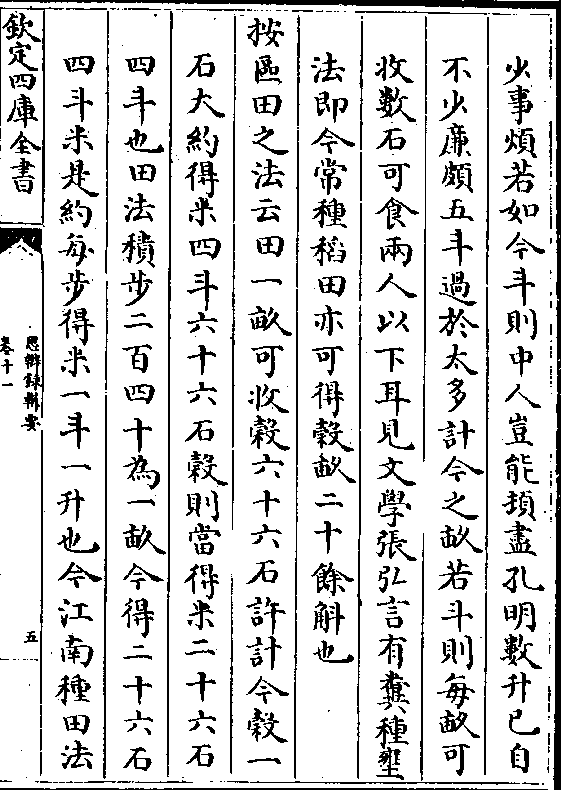 少事煩若如今斗則中人豈能頓盡孔明數升已自
不少廉頗五斗過於太多計今之畝若斗則每畝可
收數石可食兩人以下耳見文學張弘言有糞種壅
法即今常種稻田亦可得穀畝二十餘斛也
按區田之法云田一畝可收穀六十六石許計今穀一
石大約得米四斗六十六石穀則當得米二十六石
四斗也田法積步二百四十為一畝今得二十六石
四斗米是約每步得米一斗一升也今江南種田法
欽定四庫全書
思辨錄輯要
卷十一
五